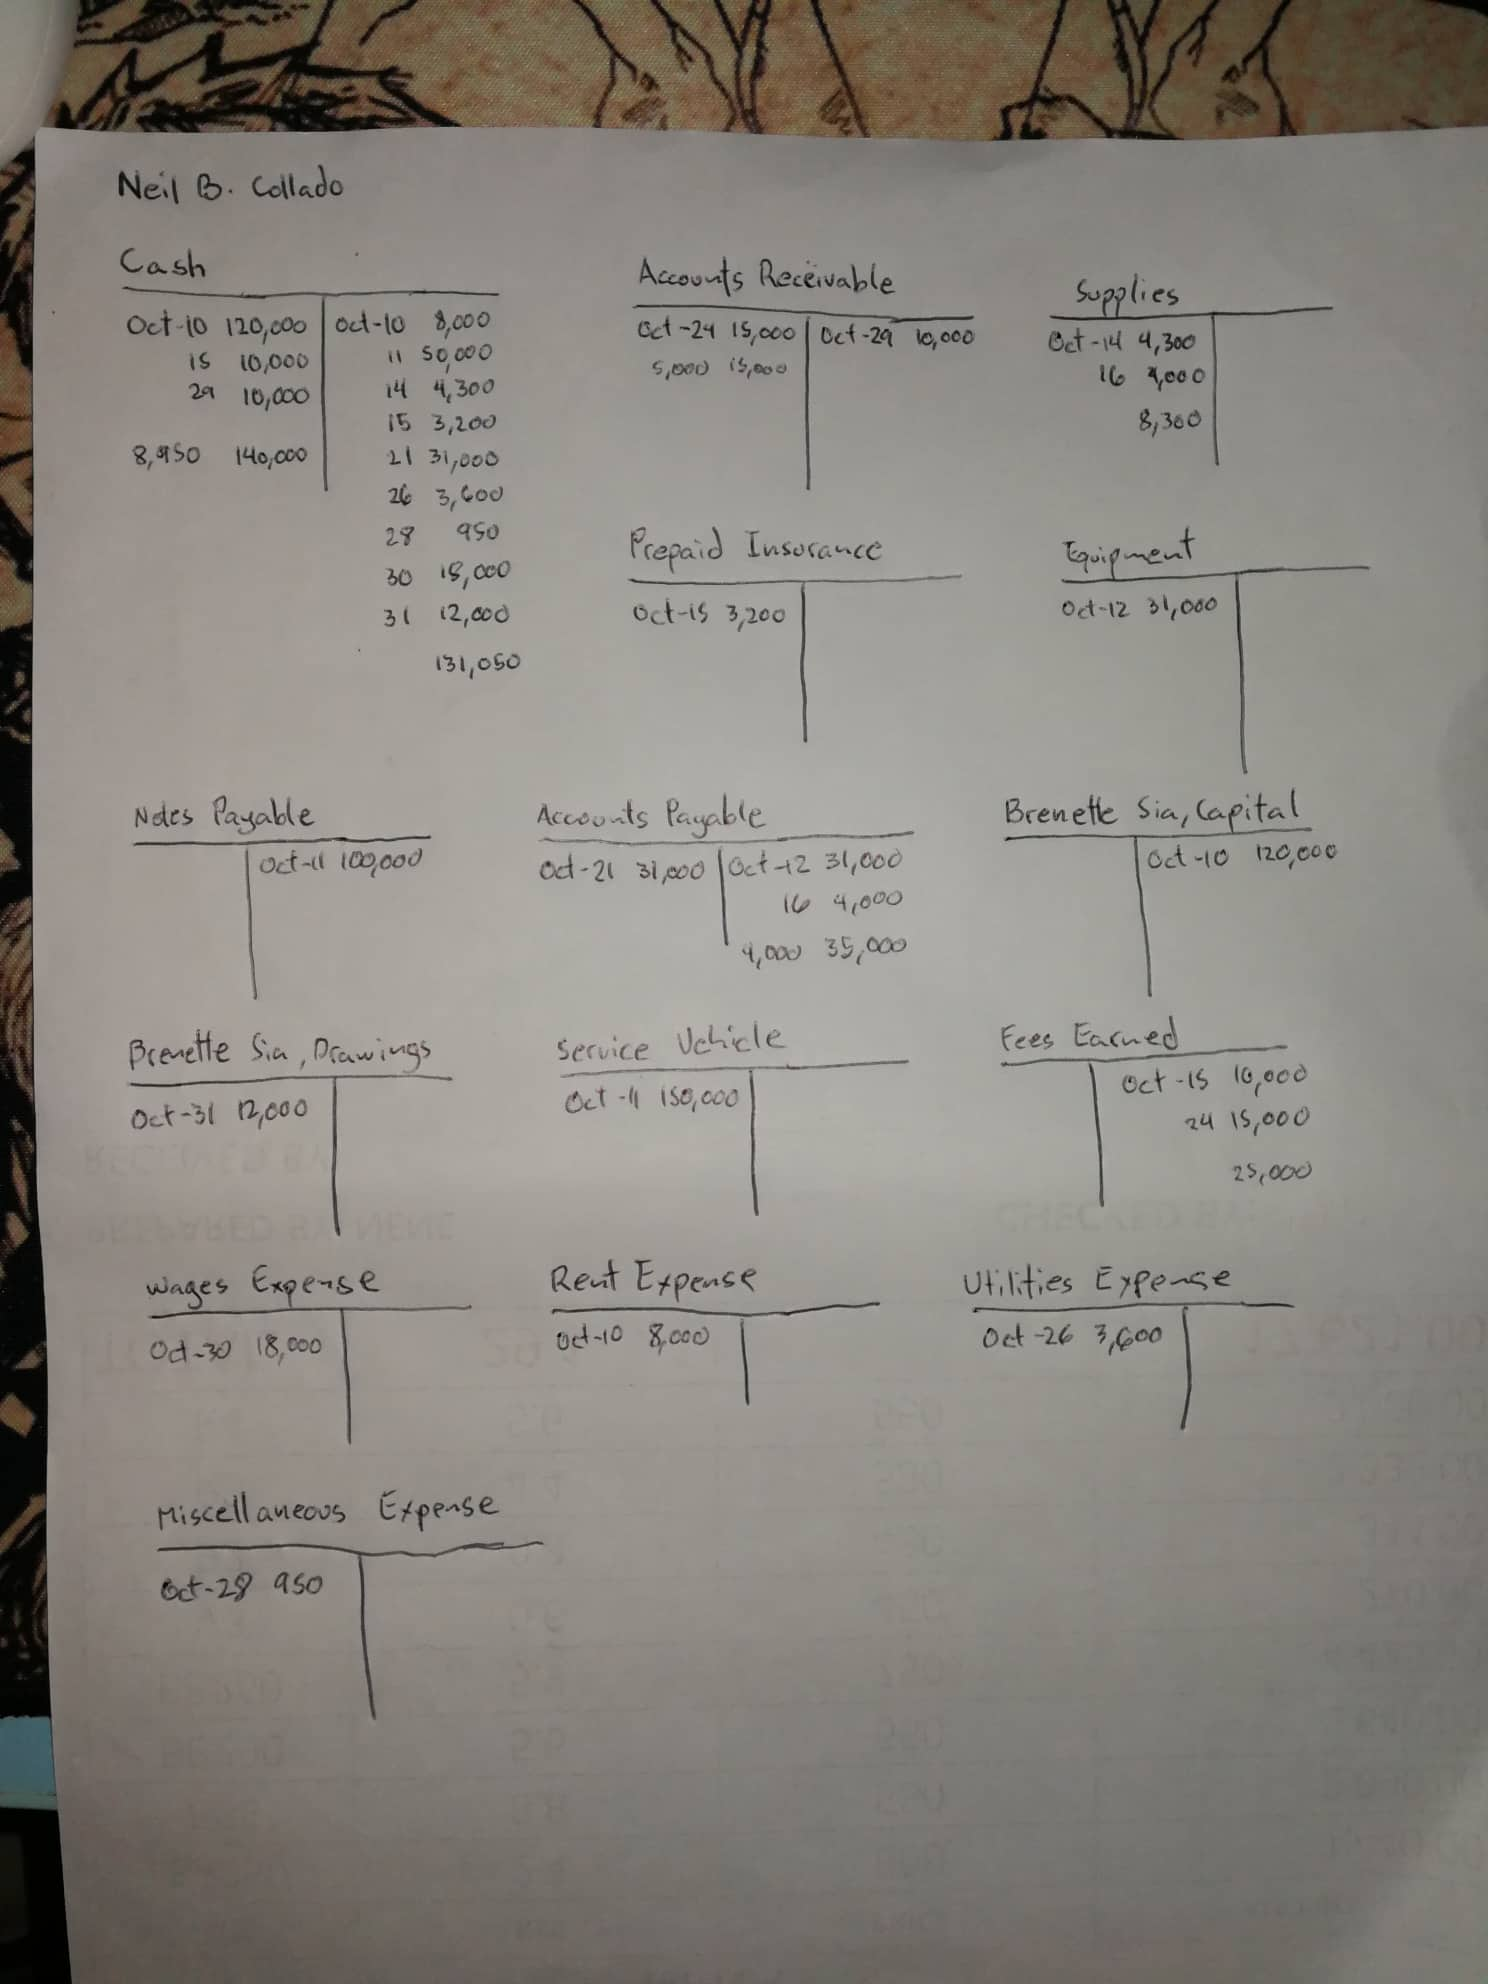 Neil B. Collado
Cash
Oct-10 120,000 Oct-10 8,000
15 10,000 11 50,000
29 10,000 14 4,300
15 3,200
8,950 140,000 21 31,000
26 3,600
28 950
30 18,000
31 12,000
131,050
Accounts Receivable
Oct-24 15,000 Oct-29 10,000
5,000 15,000
Supplies
Oct-14 4,300
16 4,000
8,300
Prepaid Insurance
Oct-15 3,200
Equipment
Oct-12 31,000
Notes Payable
Oct-11 100,000
Accounts Payable
Oct-21 31,000 Oct-12 31,000
16 4,000
4,000 35,000
Brenette Sia, Capital
Oct-10 120,000
Brenette Sia, Drawings
Oct-31 12,000
Service Vehicle
Oct-11 150,000
Fees Earned
Oct-15 10,000
24 15,000
25,000
Wages Expense
Oct-30 18,000
Rent Expense
Oct-10 8,000
Utilities Expense
Oct-26 3,600
Miscellaneous Expense
Oct-28 950